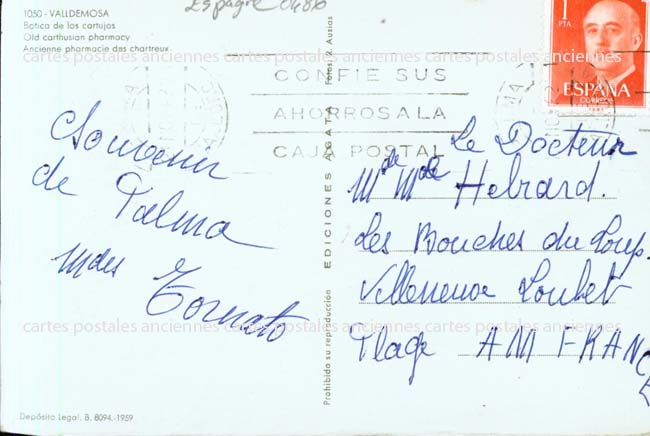 Espagne 0486
1050 - VALLDEMOSA
Botica de los cartujos
Old carthusian pharmacy
Ancienne pharmacie des chartreux
cartes postales anciennes cartes postales anciennes
CONFIE SUS
AHORROS A LA
CAJA POSTAL
1
PTA
ESPAÑA
CORREOS
Souvenir
de Palma
Tornato
EDICIONES AGATA Fotos: V. Ausias
Prohibida su reproducción
Le Docteur
Hebrard.
Les Bouches du Loup
Villeneuve Loubet
Plage AM FRANCE
cartes postales anciennes cartes postales anciennes
Depósito Legal. B. 8094.-1959